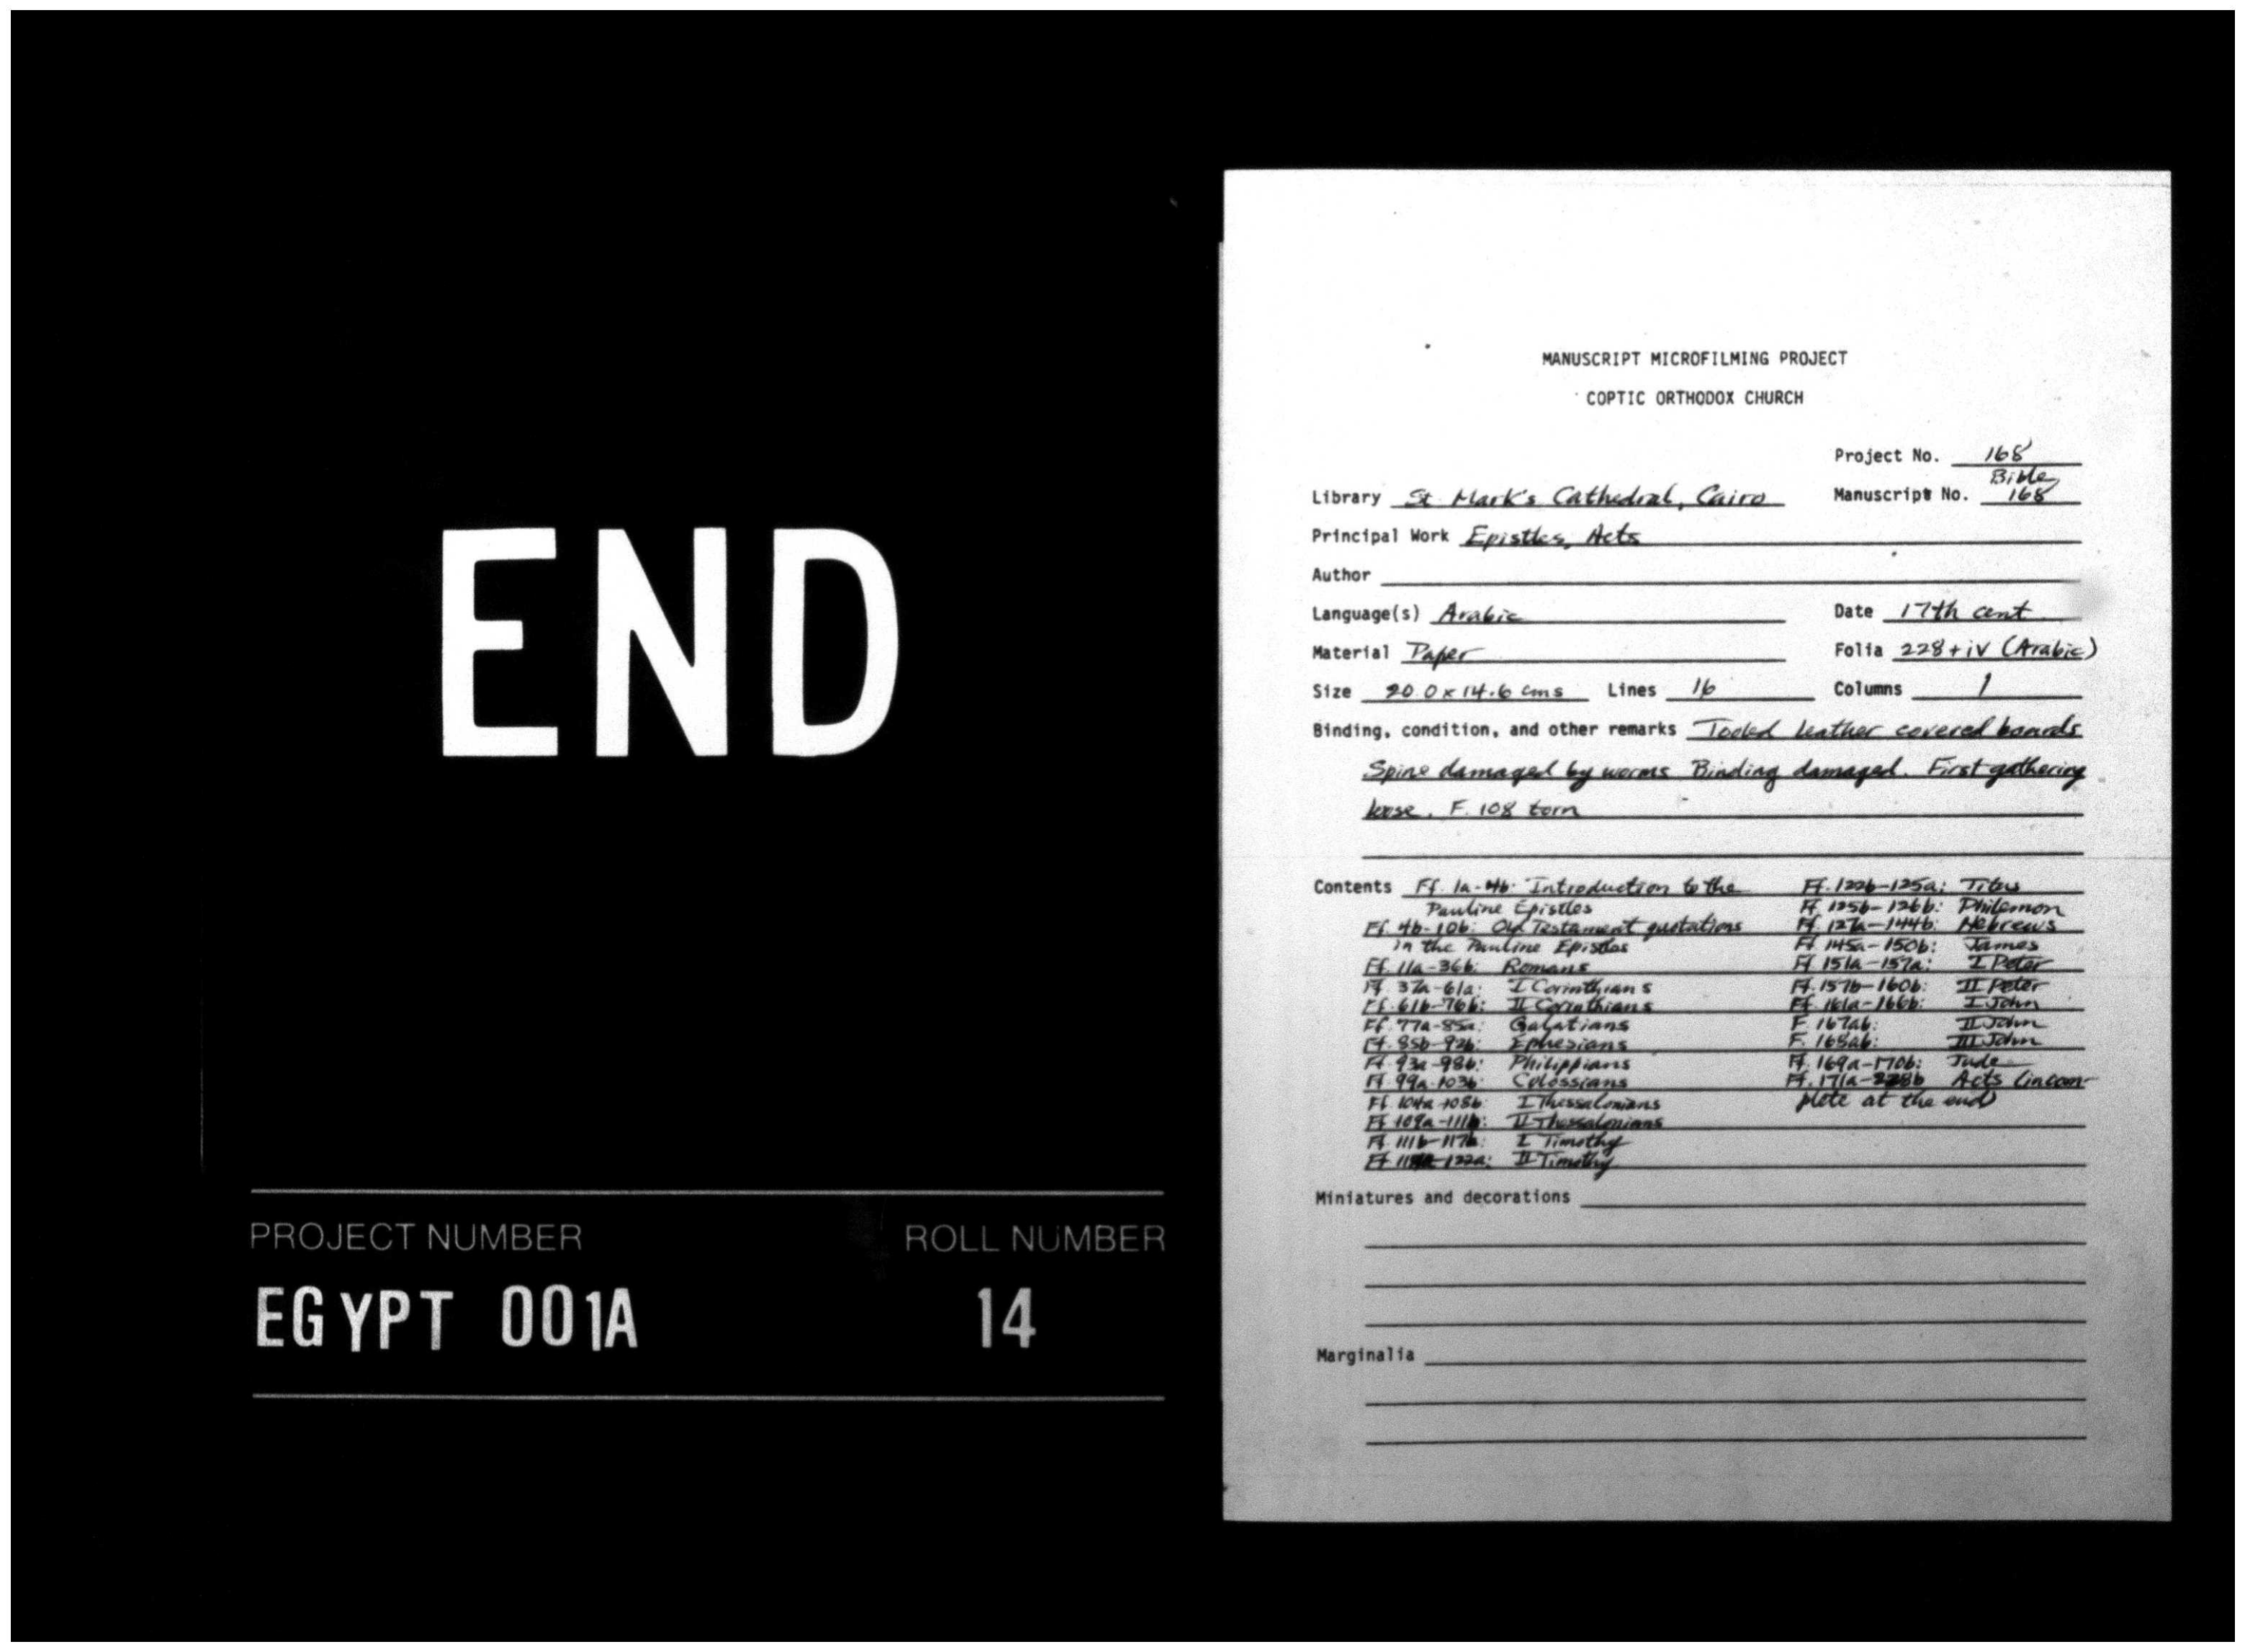 END
PROJECT NUMBER ROLL NUMBER
EGYPT 001A 14
MANUSCRIPT MICROFILMING PROJECT
COPTIC ORTHODOX CHURCH
Project No. 168
Library St Mark's Cathedral, Cairo Manuscript No. Bible 168
Principal Work Epistles, Acts
Author
Language(s) Arabic Date 17th cent
Material Paper Folia 228+iv (Arabic)
Size 20.0 x 14.6 cms Lines 16 Columns 1
Binding, condition, and other remarks Tooled leather covered boards
Spine damaged by worms Binding damaged. First gathering
loose. F. 108 torn
Contents Ff. 1a-4b: Introduction to the
Pauline Epistles
Ff. 4b-10b: Old Testament quotations
in the Pauline Epistles
Ff. 11a-36b: Romans
Ff. 37a-61a: I Corinthians
Ff. 61b-76b: II Corinthians
Ff. 77a-85a: Galatians
Ff. 85b-92b: Ephesians
Ff. 93a-98b: Philippians
Ff. 99a-103b: Colossians
Ff. 104a-108b: I Thessalonians
Ff. 109a-111b: II Thessalonians
Ff. 111b-117b: I Timothy
Ff. 122a: II Timothy
Ff. 122b-125a: Titus
Ff. 125b-126b: Philemon
Ff. 127a-144b: Hebrews
Ff. 145a-150b: James
Ff. 151a-157a: I Peter
Ff. 157b-160b: II Peter
Ff. 161a-166b: I John
F. 167ab: II John
F. 168ab: III John
Ff. 169a-170b: Jude
Ff. 171a-228b Acts (incom-
plete at the end)
Miniatures and decorations
Marginalia